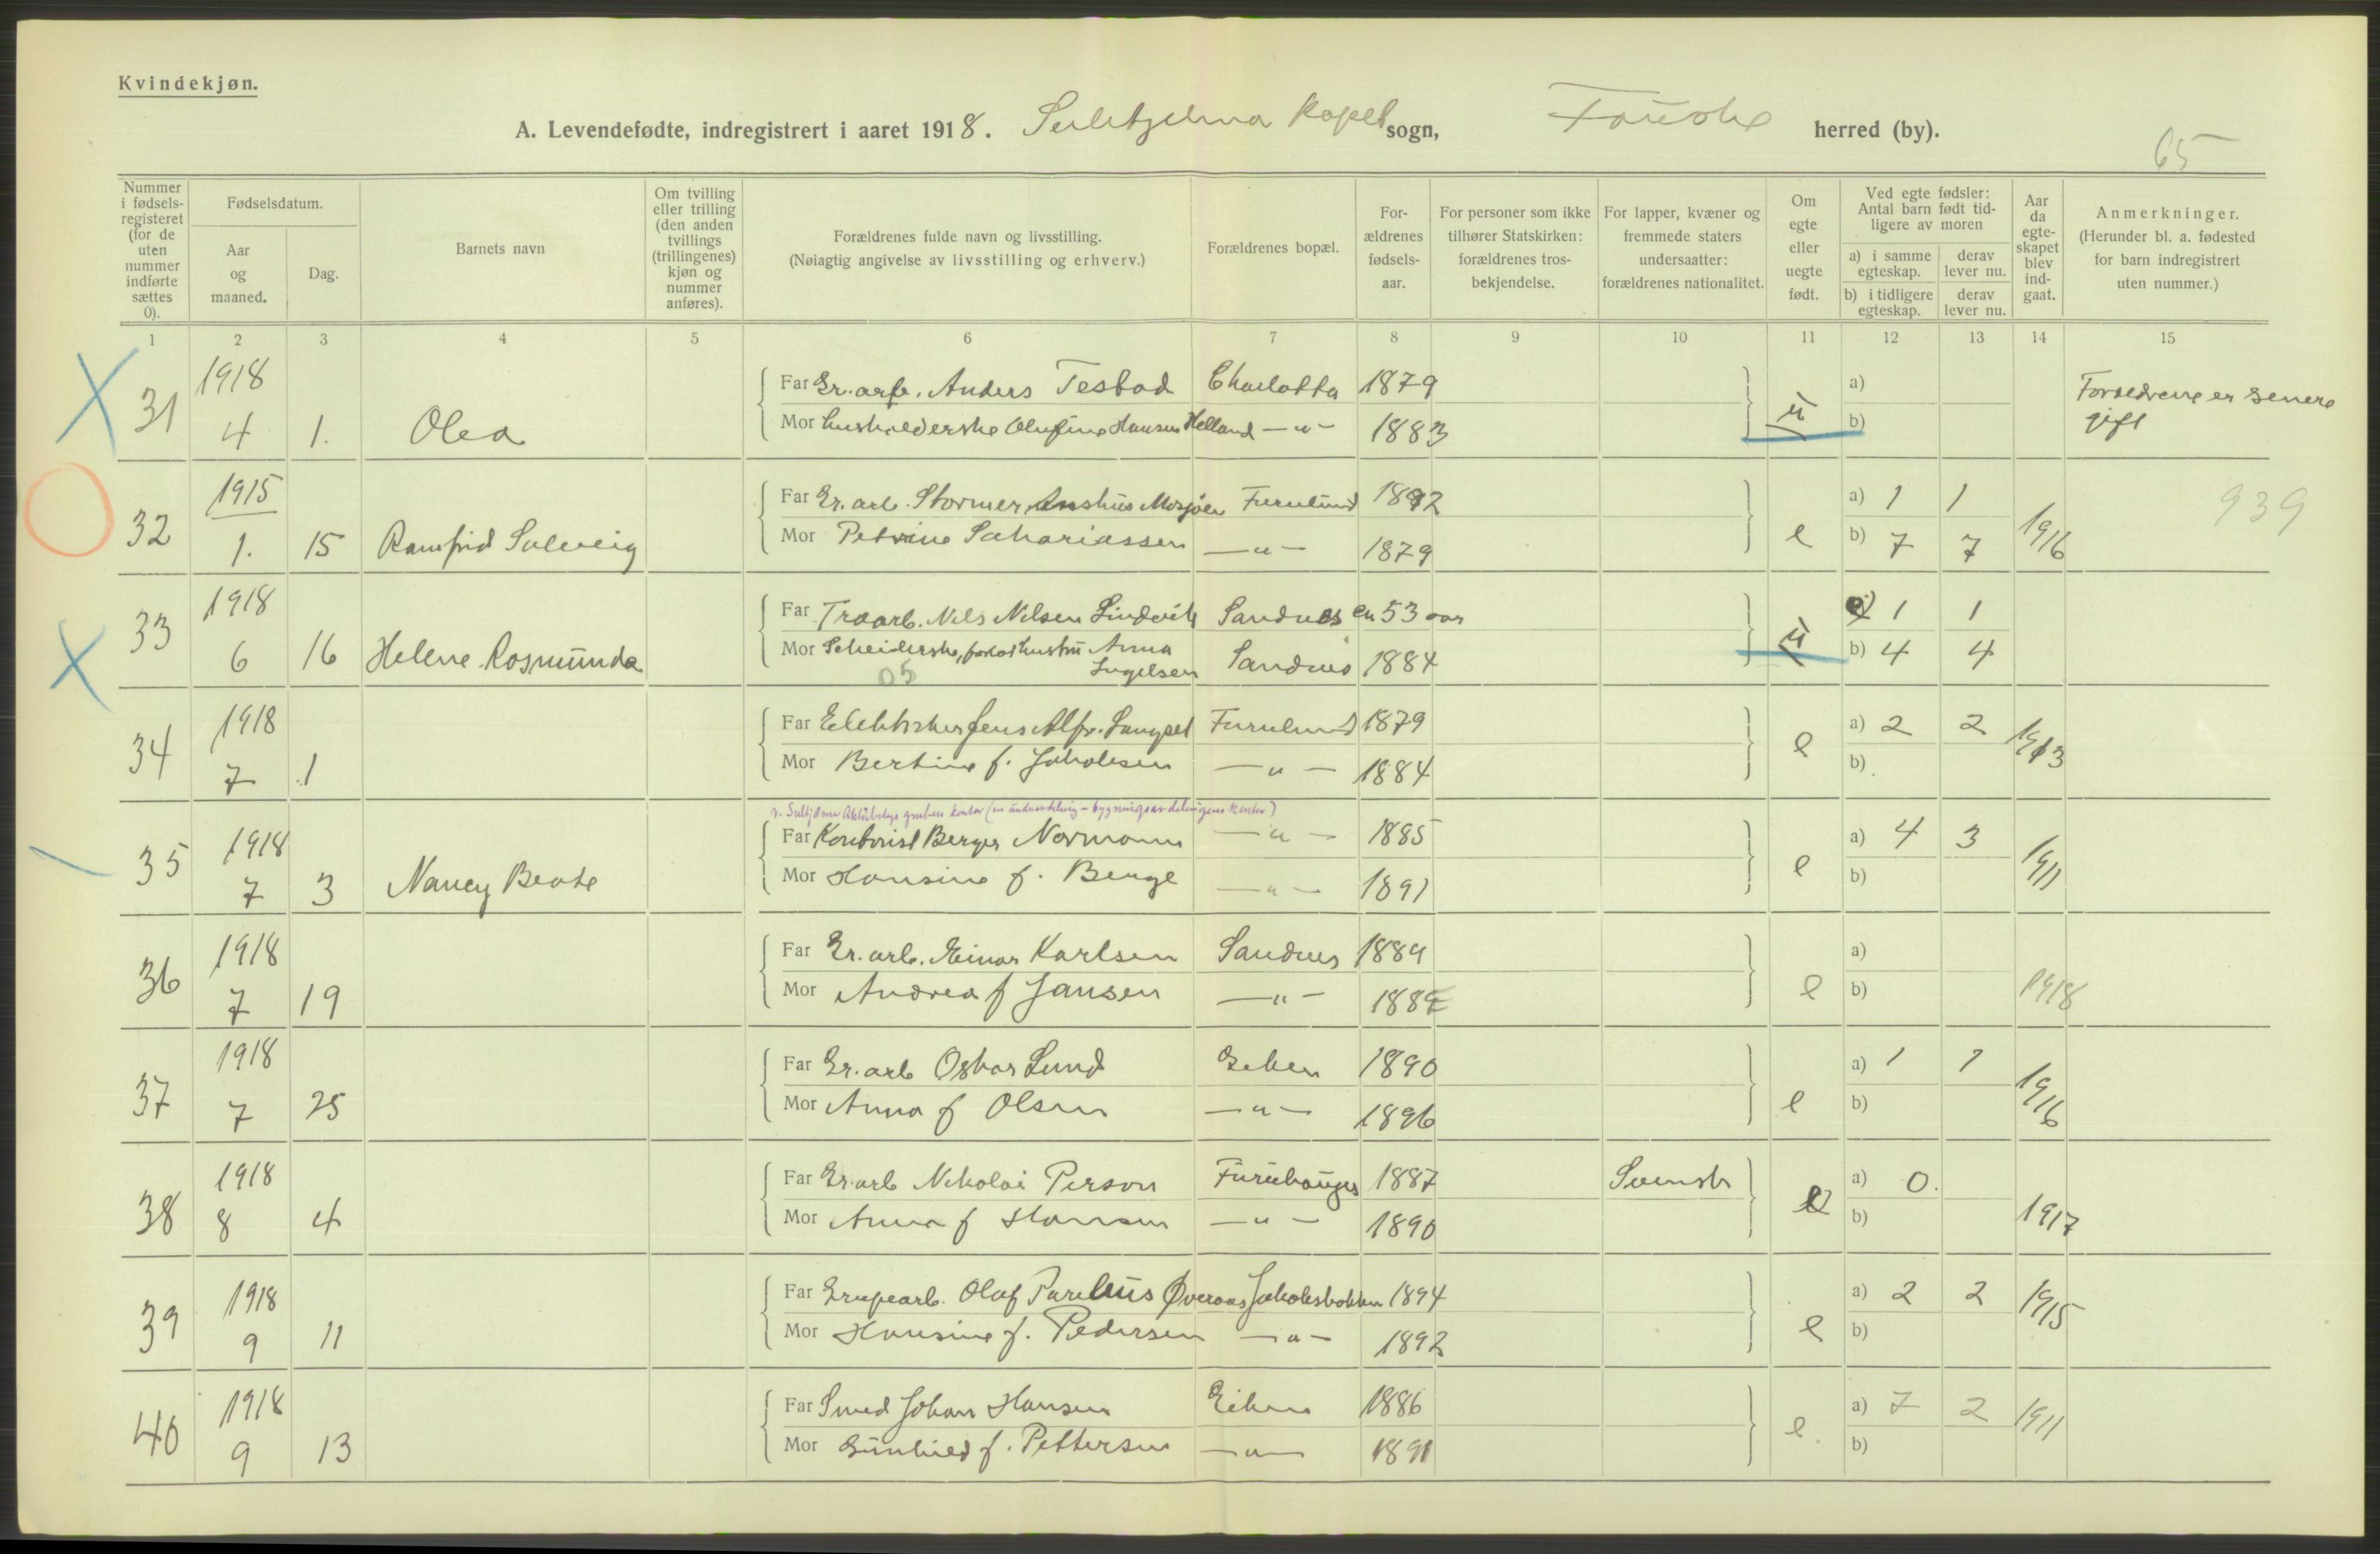 Kvindekjøn.
A. Levendefødte, indregistrert i aaret 1918. Sulitjelma Kapel sogn, Fauske herred (by).
65
Nummer i fødsels-registeret (for de uten nummer indførte sættes 0).
Fødselsdatum.
Aar og maaned.
Dag.
Barnets navn
Om tvilling eller trilling (den anden tvillings (trillingenes) kjøn og nummer anføres).
Forældrenes fulde navn og livsstilling.
(Nøiagtig angivelse av livsstilling og erhverv.)
Forældrenes bopæl.
For-ældrenes fødsels-aar.
For personer som ikke tilhører Statskirken: forældrenes tros-bekjendelse.
For lapper, kvæner og fremmede staters undersaatter: forældrenes nationalitet.
Om egte eller uegte født.
Ved egte fødsler: Antal barn født tid-ligere av moren
a) i samme egteskap.
derav lever nu.
b) i tidligere egteskap.
derav lever nu.
Aar da egte-skapet blev ind-gaat.
Anmerkninger.
(Herunder bl. a. fødested for barn indregistrert uten nummer.)
1 2 3 4 5 6 7 8 9 10 11 12 13 14 15
31 1918 4 1. Olea
Far Gr. arb. Anders Testad Charlotta 1879
Mor husholderske Olufine Hansen Helland -"- 1883
ü a) b)
Forældrene er senere gift
32 1915 1. 15 Ramfrid Solveig
Far Gr. arb. Stormer Mosjøen Furulund 1892
Mor Petrine Sahariassen -"- 1879
e a) 1 1 b) 7 7 1916
939
33 1918 6 16 Helene Rosmunda
Far Nils Nilsen Lindvik Sandnes en 53 aar
Mor Scheiderske, Anna Ingelsen Sandnes 1884
05
ü a) 1 1 b) 4 4
34 1918 7 1
Far Elektriker Jens Alfr. Langset Furulund 1879
Mor Bertine f. Jakobsen -"- 1884
e a) 2 2 b) 1913
35 1918 7 3 Nancy Beate
Far Kontorist Berger Normann -"- 1885
Mor Hansine f. Benge -"- 1891
e a) 4 3 b) 1911
36 1918 7 19
Far Gr. arb. Einar Karlsen Sandnes 1889
Mor Andrea f Jansen -"- 1889
e a) b) 1918
37 1918 7 25
Far Gr. arb Oskar Lund Eiken 1890
Mor Anna f Olsen -"- 1896
e a) 1 1 b) 1916
38 1918 8 4
Far Gr. arb Nikolai Person Furuhaugen 1887 Svensk
Mor Anna f Hansen -"- 1890
e a) 0. b) 1917
39 1918 9 11
Far Grupearb. Olaf Parelius Øveraas Jakobsbakken 1894
Mor Hansine f. Pedersen -"- 1892
e a) 2 2 b) 1915
40 1918 9 13
Far Smed Johan Hansen Eiken 1886
Mor Gunhild f. Pettersen -"- 1891
e. a) 7 2 b) 1911